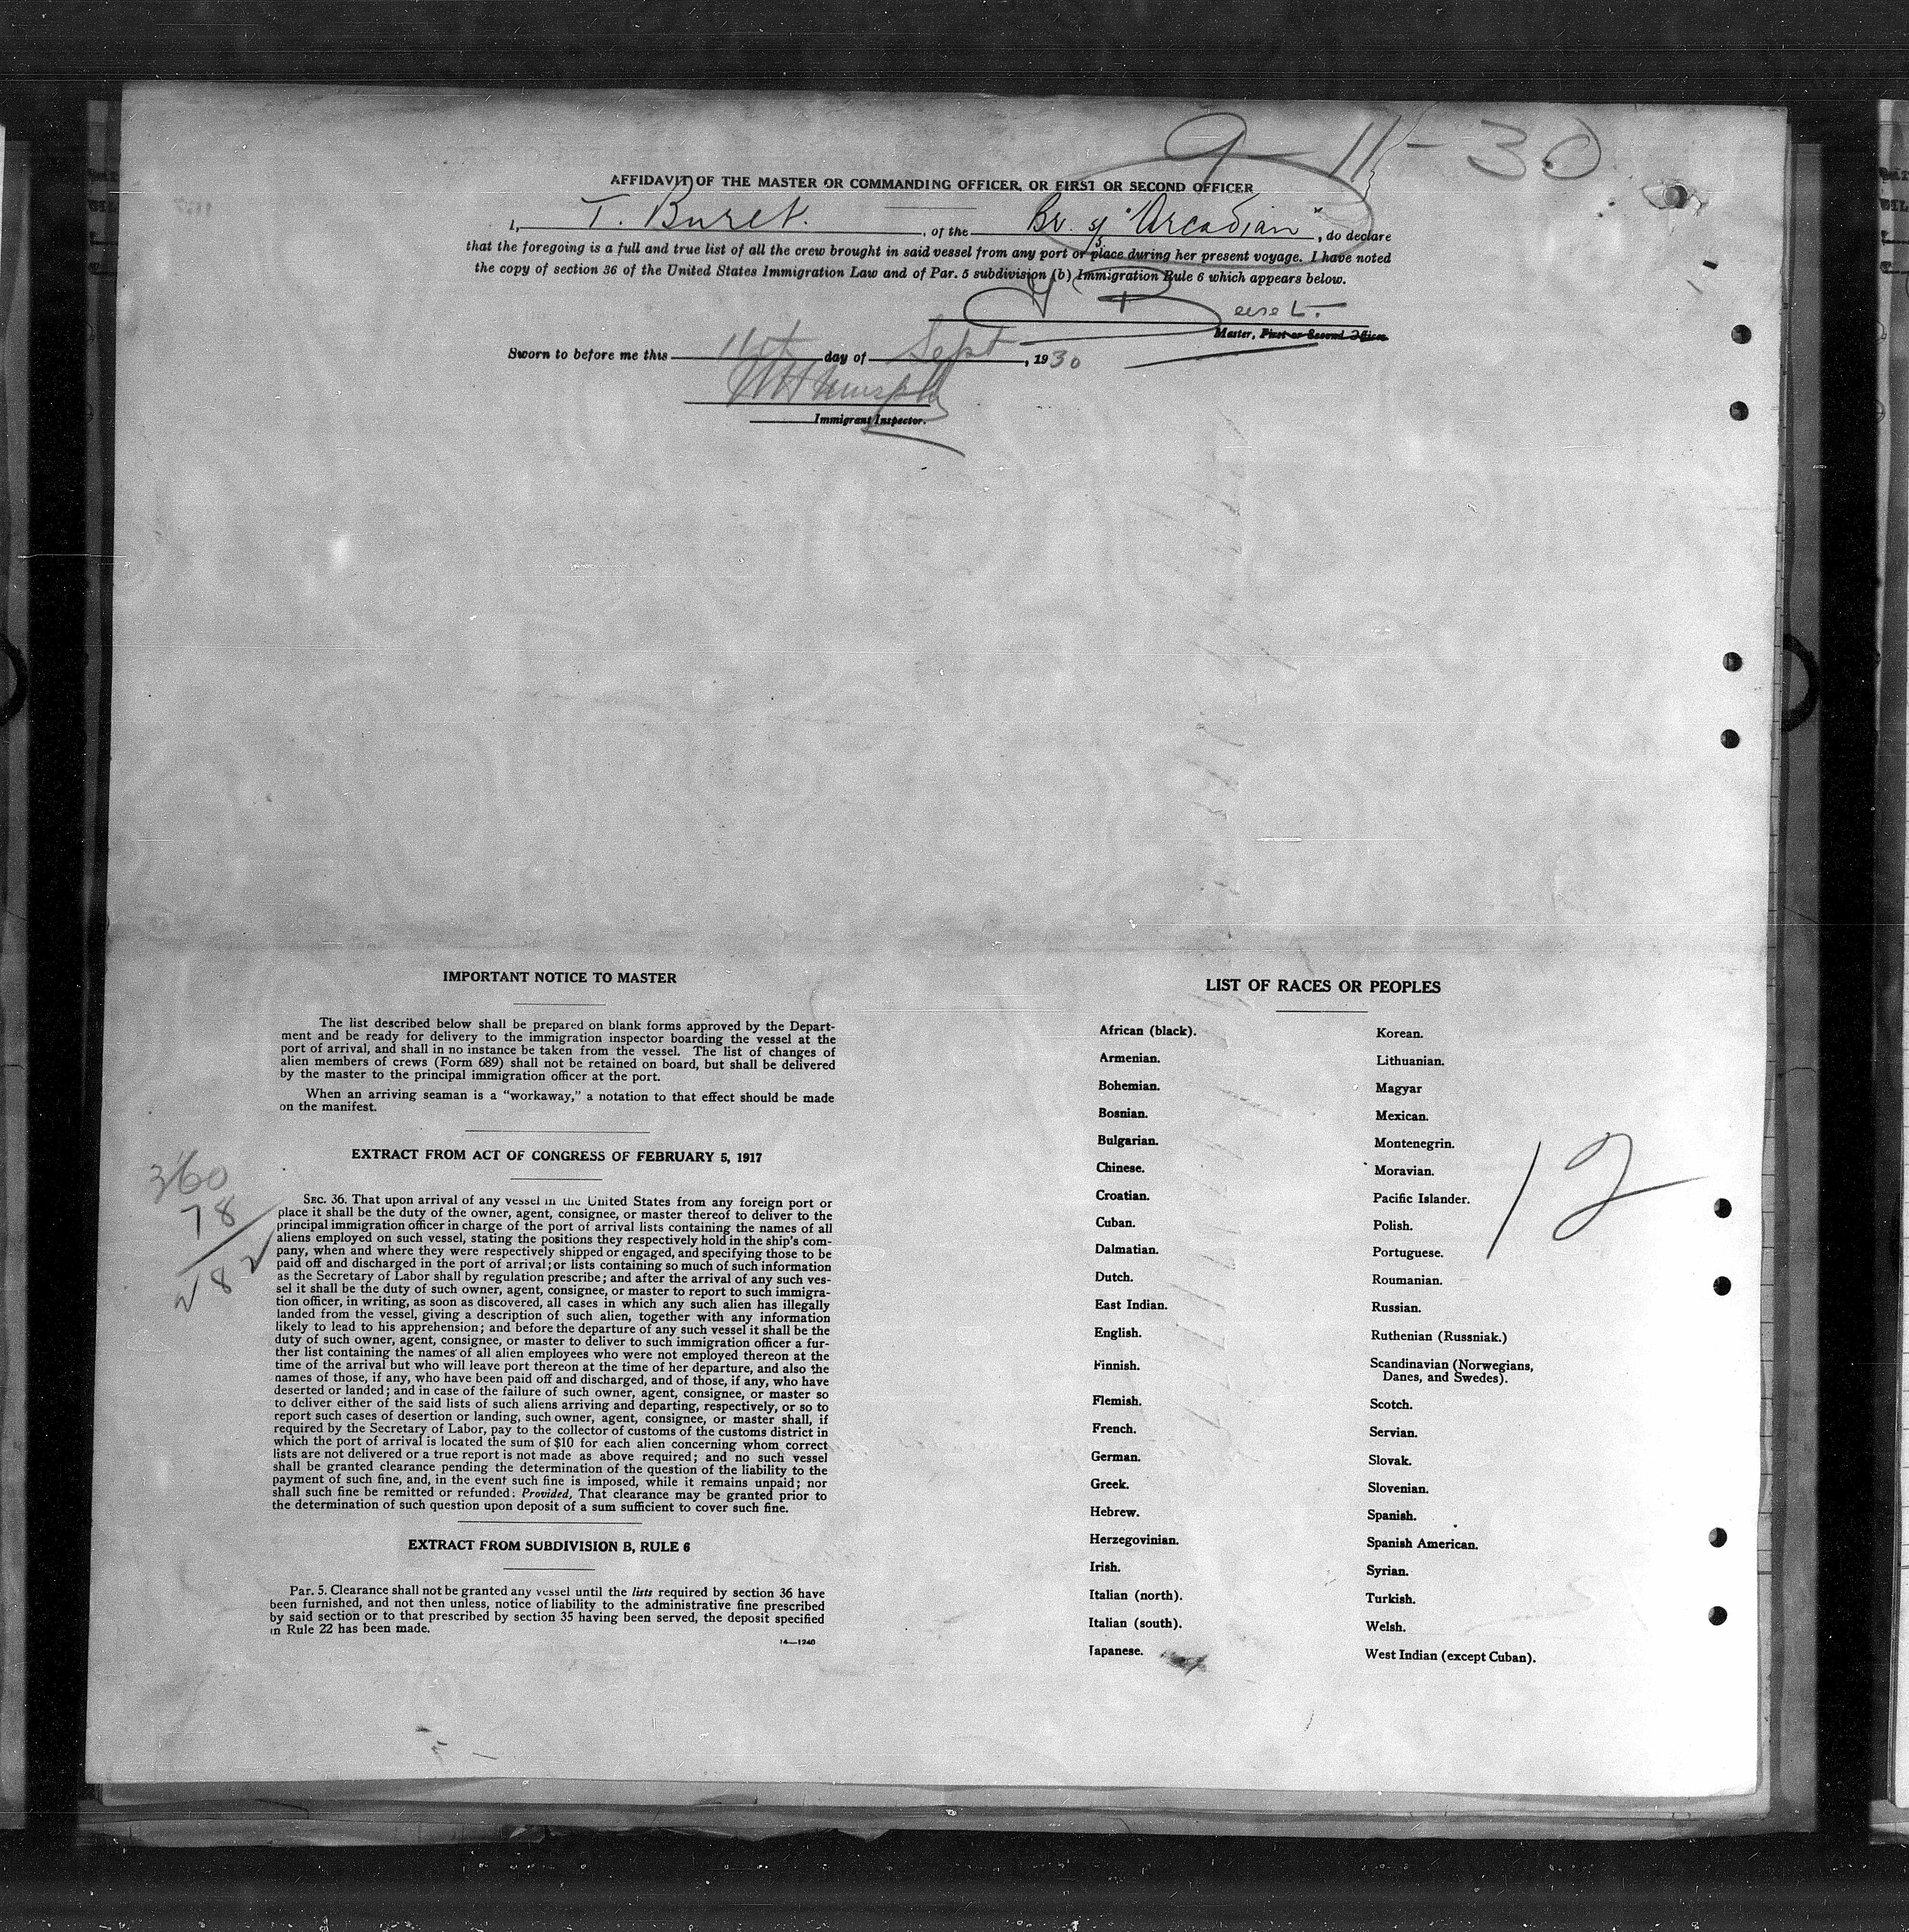 9-11-30
AFFIDAVIT OF THE MASTER OR COMMANDING OFFICER, OR FIRST OR SECOND OFFICER
I, T. Buret. , of the Br. S/S. "Arcadian" , do declare
that the foregoing is a full and true list of all the crew brought in said vessel from any port or place during her present voyage. I have noted
the copy of section 36 of the United States Immigration Law and of Par. 5 subdivision (b) Immigration Rule 6 which appears below.
Master, First or Second Officer.
Sworn to before me this 11th day of Sept , 1930
Immigrant Inspector.
IMPORTANT NOTICE TO MASTER
The list described below shall be prepared on blank forms approved by the Depart-
ment and be ready for delivery to the immigration inspector boarding the vessel at the
port of arrival, and shall in no instance be taken from the vessel. The list of changes of
alien members of crews (Form 689) shall not be retained on board, but shall be delivered
by the master to the principal immigration officer at the port.
When an arriving seaman is a "workaway," a notation to that effect should be made
on the manifest.
EXTRACT FROM ACT OF CONGRESS OF FEBRUARY 5, 1917
360
78
SEC. 36. That upon arrival of any vessel in the United States from any foreign port or
place it shall be the duty of the owner, agent, consignee, or master thereof to deliver to the
principal immigration officer in charge of the port of arrival lists containing the names of all
aliens employed on such vessel, stating the positions they respectively hold in the ship's com-
pany, when and where they were respectively shipped or engaged, and specifying those to be
paid off and discharged in the port of arrival; or lists containing so much of such information
as the Secretary of Labor shall by regulation prescribe; and after the arrival of any such ves-
sel it shall be the duty of such owner, agent, consignee, or master to report to such immigra-
tion officer, in writing, as soon as discovered, all cases in which any such alien has illegally
landed from the vessel, giving a description of such alien, together with any information
likely to lead to his apprehension; and before the departure of any such vessel it shall be the
duty of such owner, agent, consignee, or master to deliver to such immigration officer a fur-
ther list containing the names of all alien employees who were not employed thereon at the
time of the arrival but who will leave port thereon at the time of her departure, and also the
names of those, if any, who have been paid off and discharged, and of those, if any, who have
deserted or landed; and in case of the failure of such owner, agent, consignee, or master so
to deliver either of the said lists of such aliens arriving and departing, respectively, or so to
report such cases of desertion or landing, such owner, agent, consignee, or master shall, if
required by the Secretary of Labor, pay to the collector of customs of the customs district in
which the port of arrival is located the sum of $10 for each alien concerning whom correct
lists are not delivered or a true report is not made as above required; and no such vessel
shall be granted clearance pending the determination of the question of the liability to the
payment of such fine, and, in the event such fine is imposed, while it remains unpaid; nor
shall such fine be remitted or refunded: Provided, That clearance may be granted prior to
the determination of such question upon deposit of a sum sufficient to cover such fine.
EXTRACT FROM SUBDIVISION B, RULE 6
Par. 5. Clearance shall not be granted any vessel until the lists required by section 36 have
been furnished, and not then unless, notice of liability to the administrative fine prescribed
by said section or to that prescribed by section 35 having been served, the deposit specified
in Rule 22 has been made.
14—1240
LIST OF RACES OR PEOPLES
African (black).
Armenian.
Bohemian.
Bosnian.
Bulgarian.
Chinese.
Croatian.
Cuban.
Dalmatian.
Dutch.
East Indian.
English.
Finnish.
Flemish.
French.
German.
Greek.
Hebrew.
Herzegovinian.
Irish.
Italian (north).
Italian (south).
Japanese.
Korean.
Lithuanian.
Magyar
Mexican.
Montenegrin.
Moravian.
Pacific Islander.
Polish.
Portuguese.
Roumanian.
Russian.
Ruthenian (Russniak.)
Scandinavian (Norwegians,
Danes, and Swedes).
Scotch.
Servian.
Slovak.
Slovenian.
Spanish.
Spanish American.
Syrian.
Turkish.
Welsh.
West Indian (except Cuban).
12